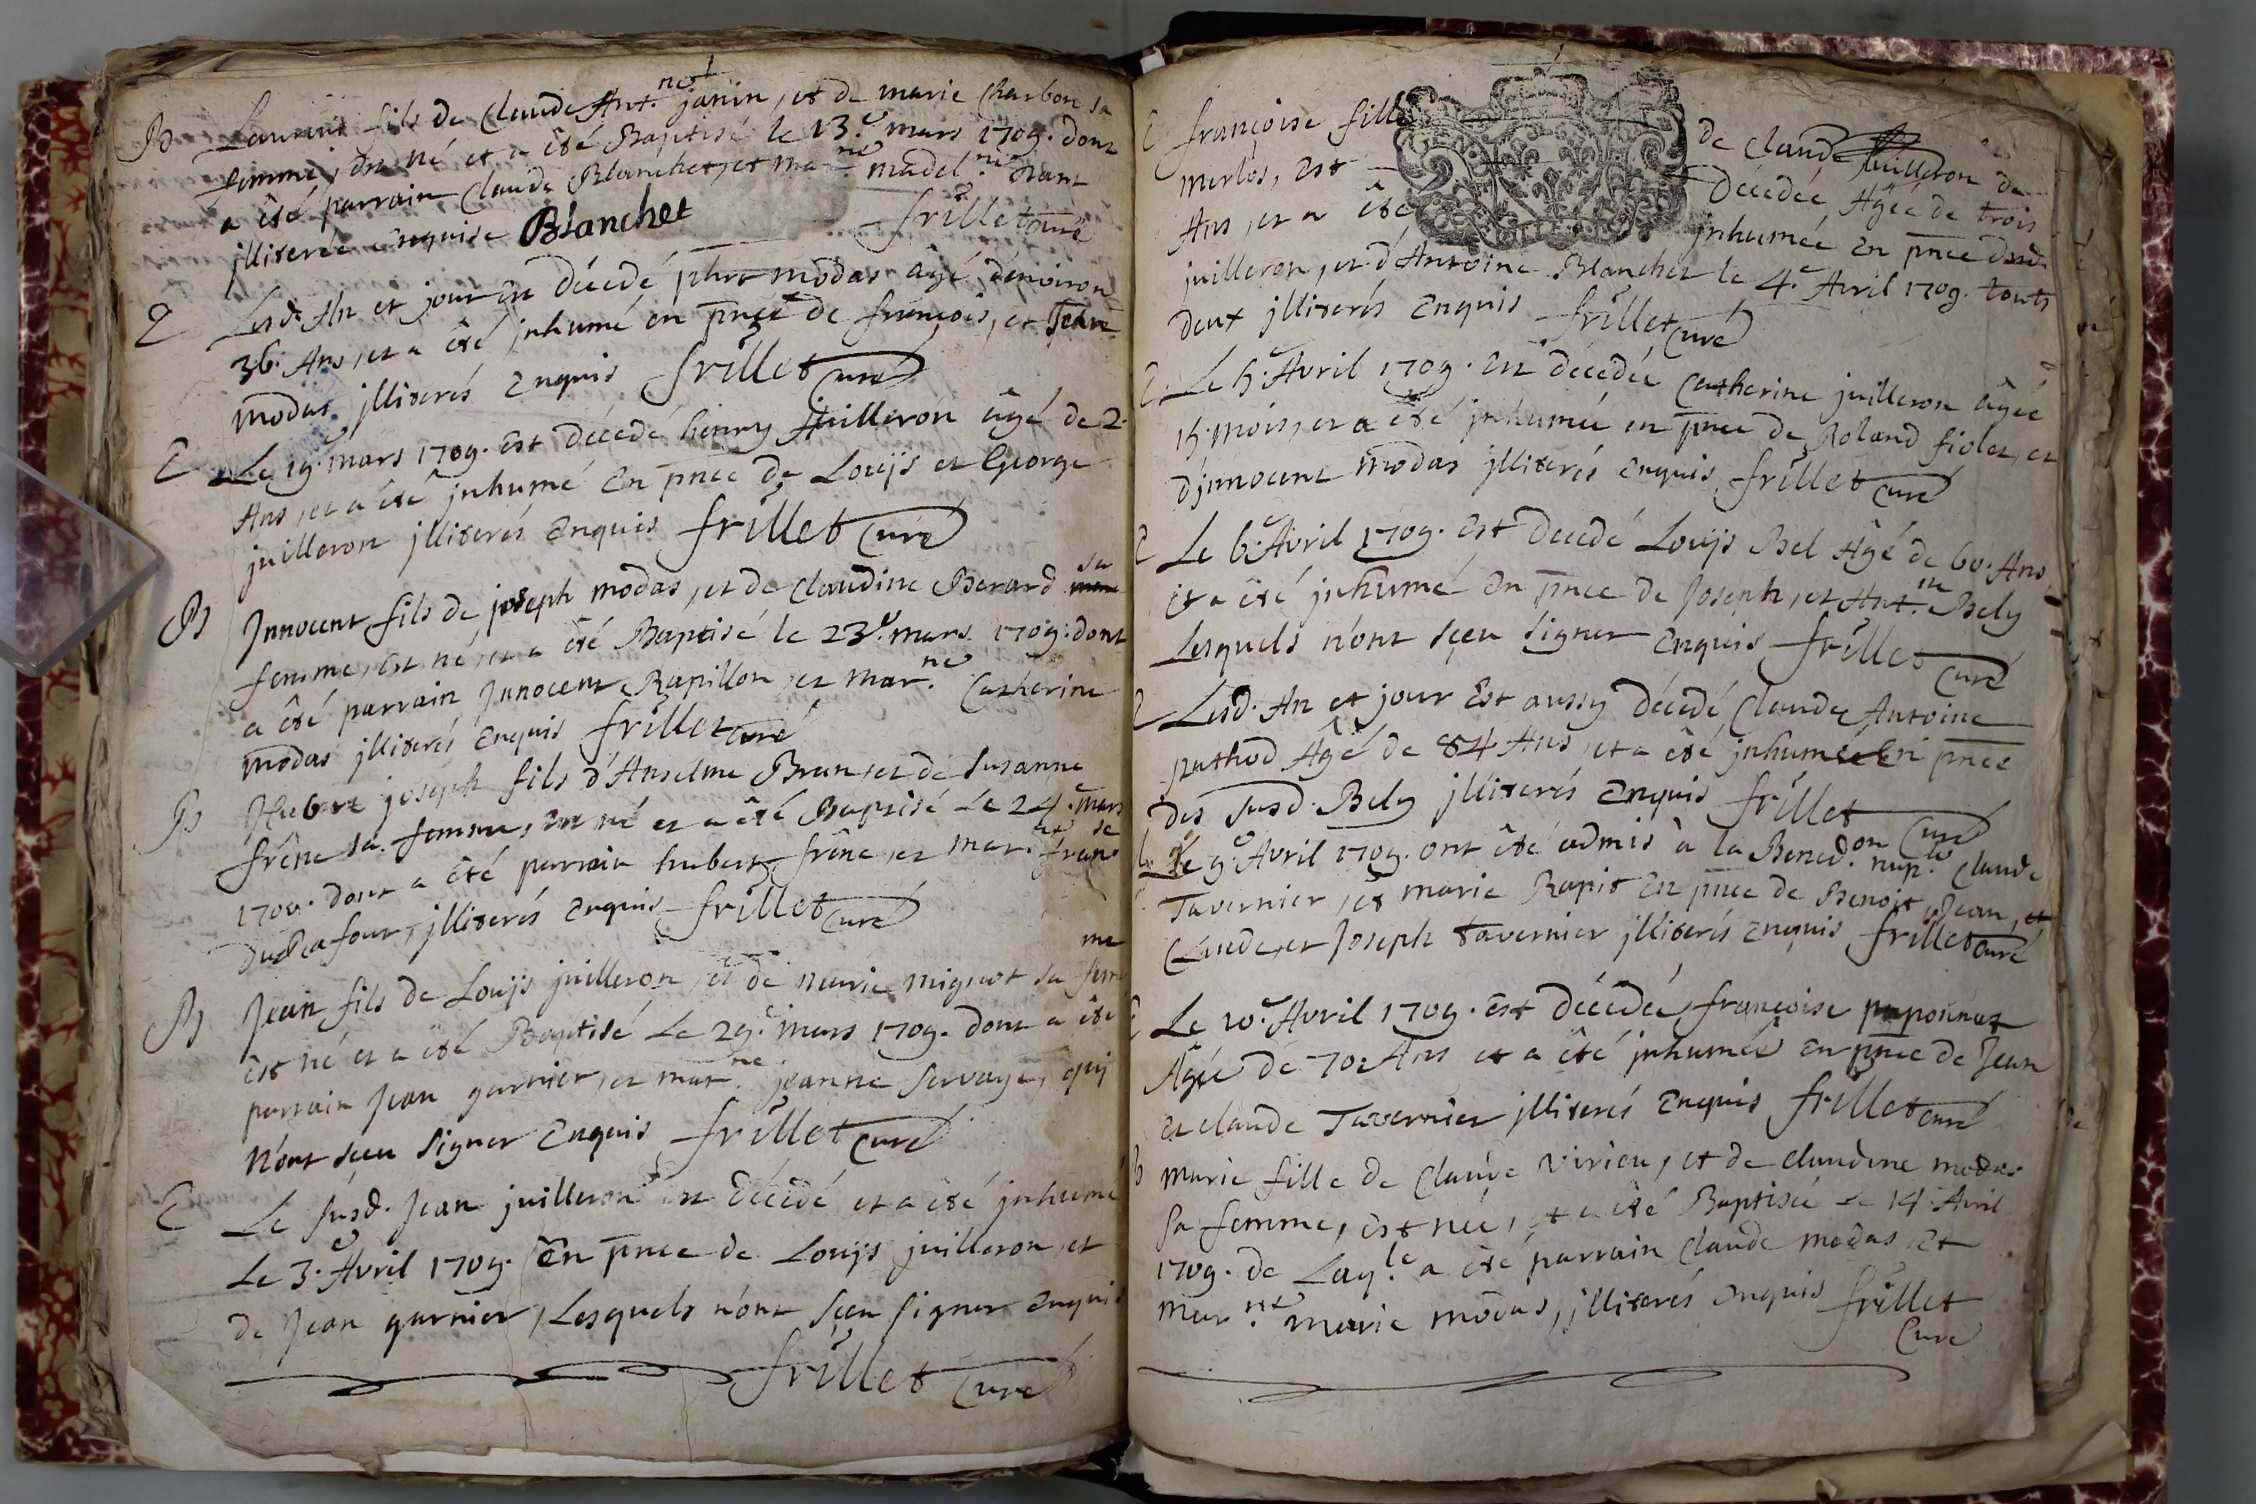 B Laurent fils de Claude Ant.ne janin, et de marie Charbon sa
femme, est né et a êté Baptisé le 13.e mars 1709. dont
a êté parrain Claude Blanchet, et mar.ne madel.ne
jlliterée enquise Blanchet frillet curé
E Lesd. An et jour est décedé modas âgé d'environ
36. Ans, et a êté jnhumé en pnce de françois, et Jean
modas jlliterés enquis frillet Curé
E Le 19. mars 1709. est décedé henry juilleron âgé de 2.
Ans, et a êté jnhumé en pnce de Louijs et George
juilleron jlliterés enquis frillet Curé
B Jnnocent fils de joseph modas, et de Claudine Berard sa
femme, est né, et a êté Baptisé le 23.e mars 1709. dont
a êté parrain Jnnocent Rapillon, et mar.ne Catherine
modas jlliterés enquis frillet curé
B Hubert joseph fils d'Anselme Brun, et de Susanne
frêne sa femme, est né et a êté Baptisé Le 24.e mars
1709. dont a êté parrain hubert frêne, et mar.ne franse
Ducafour, jlliterés enquis frillet curé
B Jean fils de Louijs juilleron, et de marie mignot sa femme
est né et a êté Baptisé Le 29.e mars 1709. dont a êté
parrain Jean garnier, et mar.ne jeanne servaye, quj
n'ont sceu signer enquis frillet curé
E Le susd. Jean juilleron est décedé et a êté jnhumé
Le 3.e Avril 1709. en pnce de Louijs juilleron, et
de Jean garnier, Lesquels n'ont sceu signer enquis
frillet Curé
E françoise fille de Claude Juilleron de
merlos, est décedée Agée de trois
Ans, et a êté jnhumée en pnce dud.
juilleron, et d'Antoine Blanchet le 4.e Avril 1709. touts
deux jlliterés enquis frillet Curé
E Le 5.e Avril 1709. est décedée Catherine juilleron âgée
15. mois, et a êté jnhumée en pnce de Roland fiolet, et
d'jnnocent modas jlliterés enquis frillet Curé
E Le 6.e Avril 1709. est decedé Louijs Bel Agé de 60. Ans,
et a êté jnhumé en pnce de Joseph, et Ant.ne Bely
Lesquels n'ont sçeu signer enquis frillet Curé
E Lesd. An et jour est aussy décedé Claude Antoine
puthod Agé de 84 Ans, et a êté jnhumé en pnce
des susd. Bely jlliterés enquis frillet Curé
Le 9.e Avril 1709. ont êté admis à la Bened.on nup.le Claude
Tavernier, et marie Rapit en pnce de Benoit, Jean, et
Claude, et Joseph tavernier jlliterés enquis frillet curé
E Le 10.e Avril 1709. est décedée françoise paponnat
Agée de 70 Ans et a êté jnhumée en pnce de Jean
et claude Tavernier jlliterés enquis frillet curé
B marie fille de Claude virieu, et de claudine modas
sa femme, est née, et a êté Baptisée Le 14. Avril
1709. de Laq.le a êté parrain Claude modas, et
mar.ne marie modas, jlliterés enquis frillet
Curé